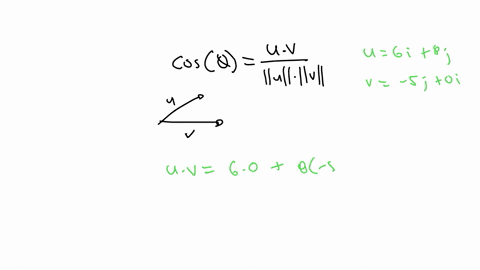 cos(θ) = u·v / ||u||·||v||
u = 6i + 8j
v = -5j + 0i
u
v
u·v = 6·0 + 8(-5